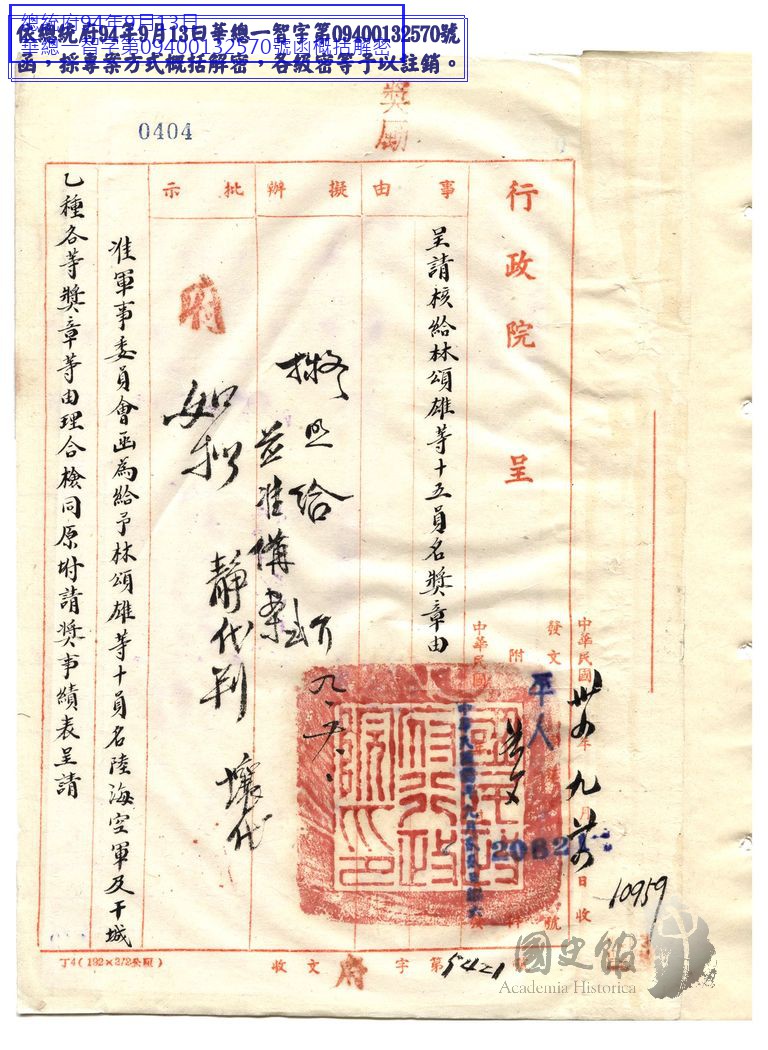 總統府94年9月13日
華總一智字第09400132570號函概括解密
依總統府94年9月13日華總一智字第09400132570號
函，採專案方式概括解密，各級密等予以註銷。
獎勵
0404
行政院呈
事由
呈請核給林頌雄等十五員名獎章由
擬辦
擬照給
並准備案
九、
批示
府
如擬
靜代判
壤代
准軍事委員會函為給予林頌雄等十員名陸海空軍及干城
乙種各等獎章等由理合檢同原附請獎事績表呈請
中華民國
年
月
日收
發文
平人
字
20821
號
附
件
中華民國
10959
收文府字第5421號
丁4(192×2/2公厘)
國史館
Academia Historica